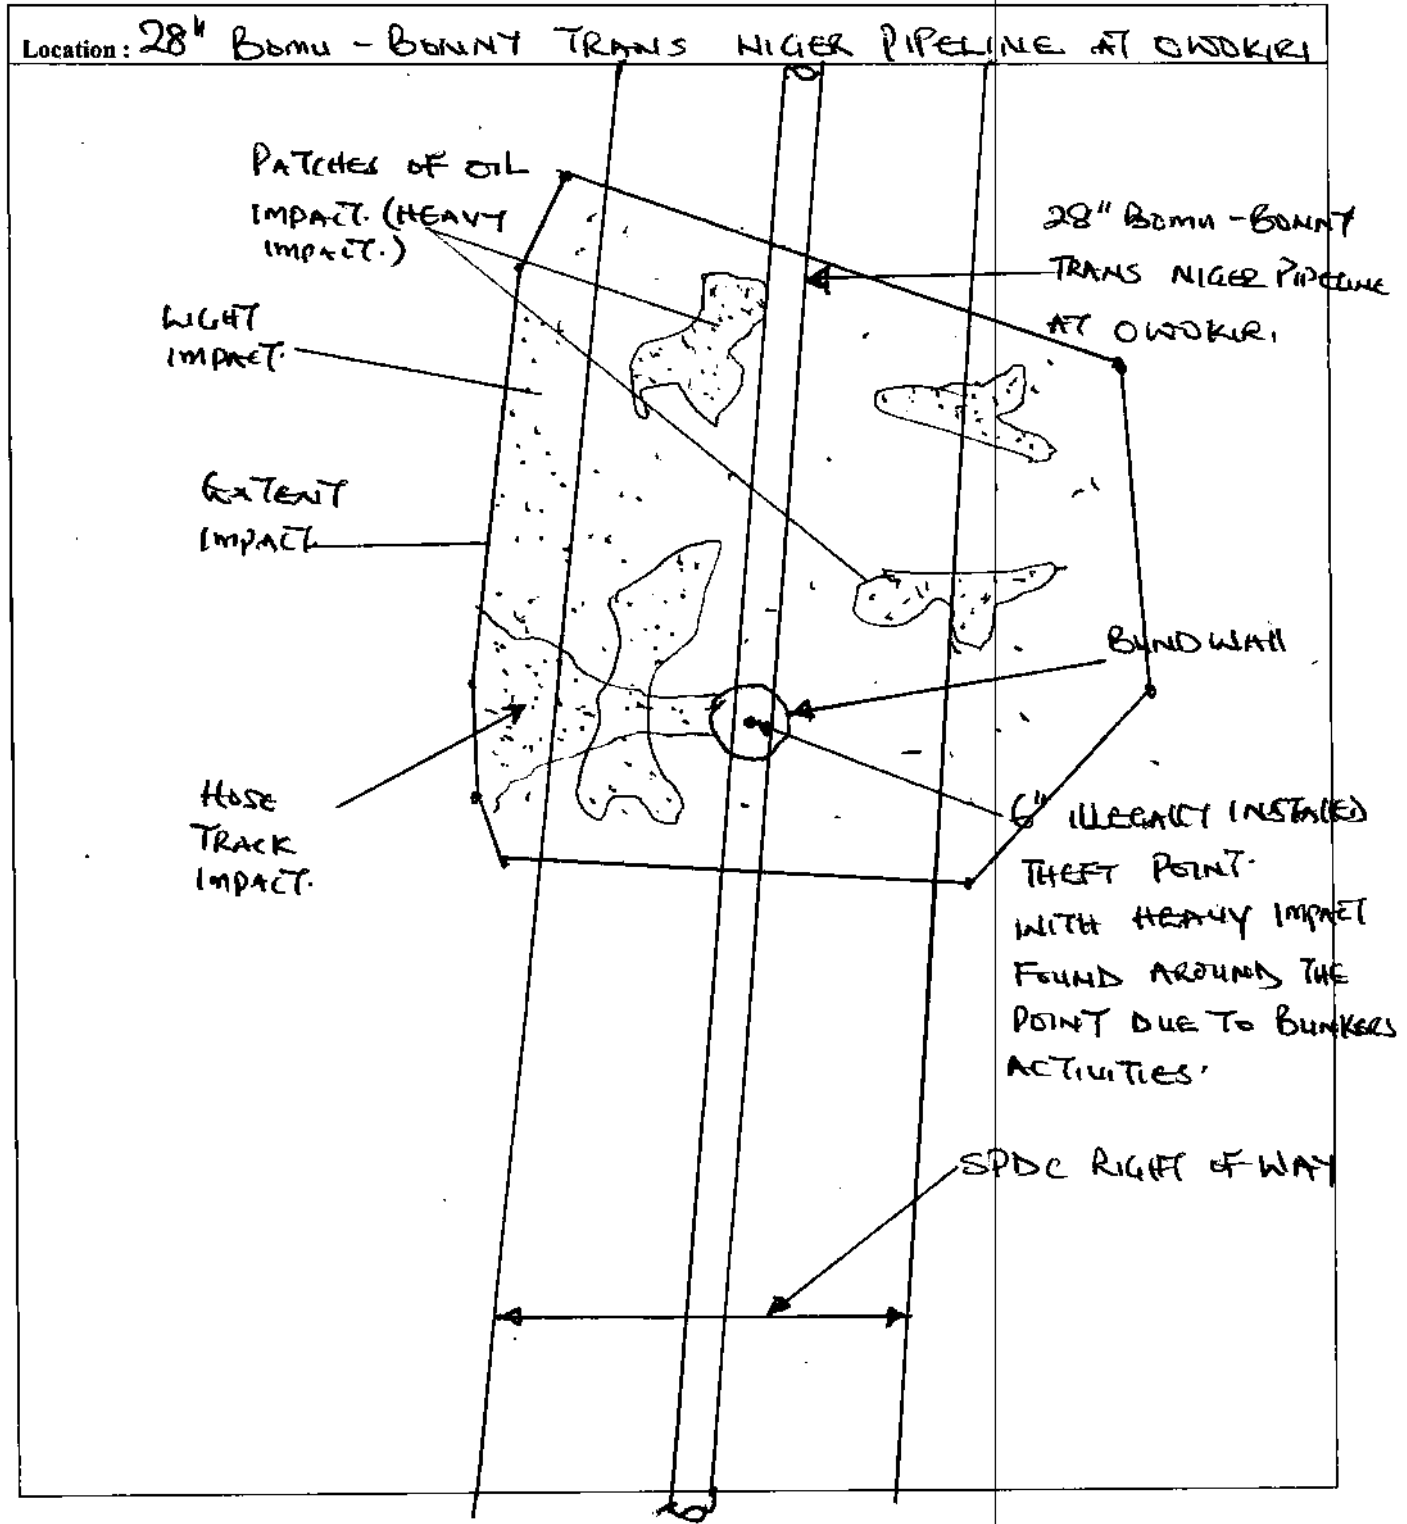 Location: 28" BOMU - BONNY TRANS NIGER PIPELINE AT OWOKIRI
PATCHES OF OIL
IMPACT. (HEAVY
IMPACT.)
28" BOMU - BONNY
TRANS NIGER PIPELINE
AT OWOKIRI
LIGHT
IMPACT.
EXTENT
IMPACT
BUND WALL
HOSE
TRACK
IMPACT.
6" ILLEGALLY INSTALLED
THEFT POINT.
WITH HEAVY IMPACT
FOUND AROUND THE
POINT DUE TO BUNKERS
ACTIVITIES.
SPDC RIGHT OF WAY